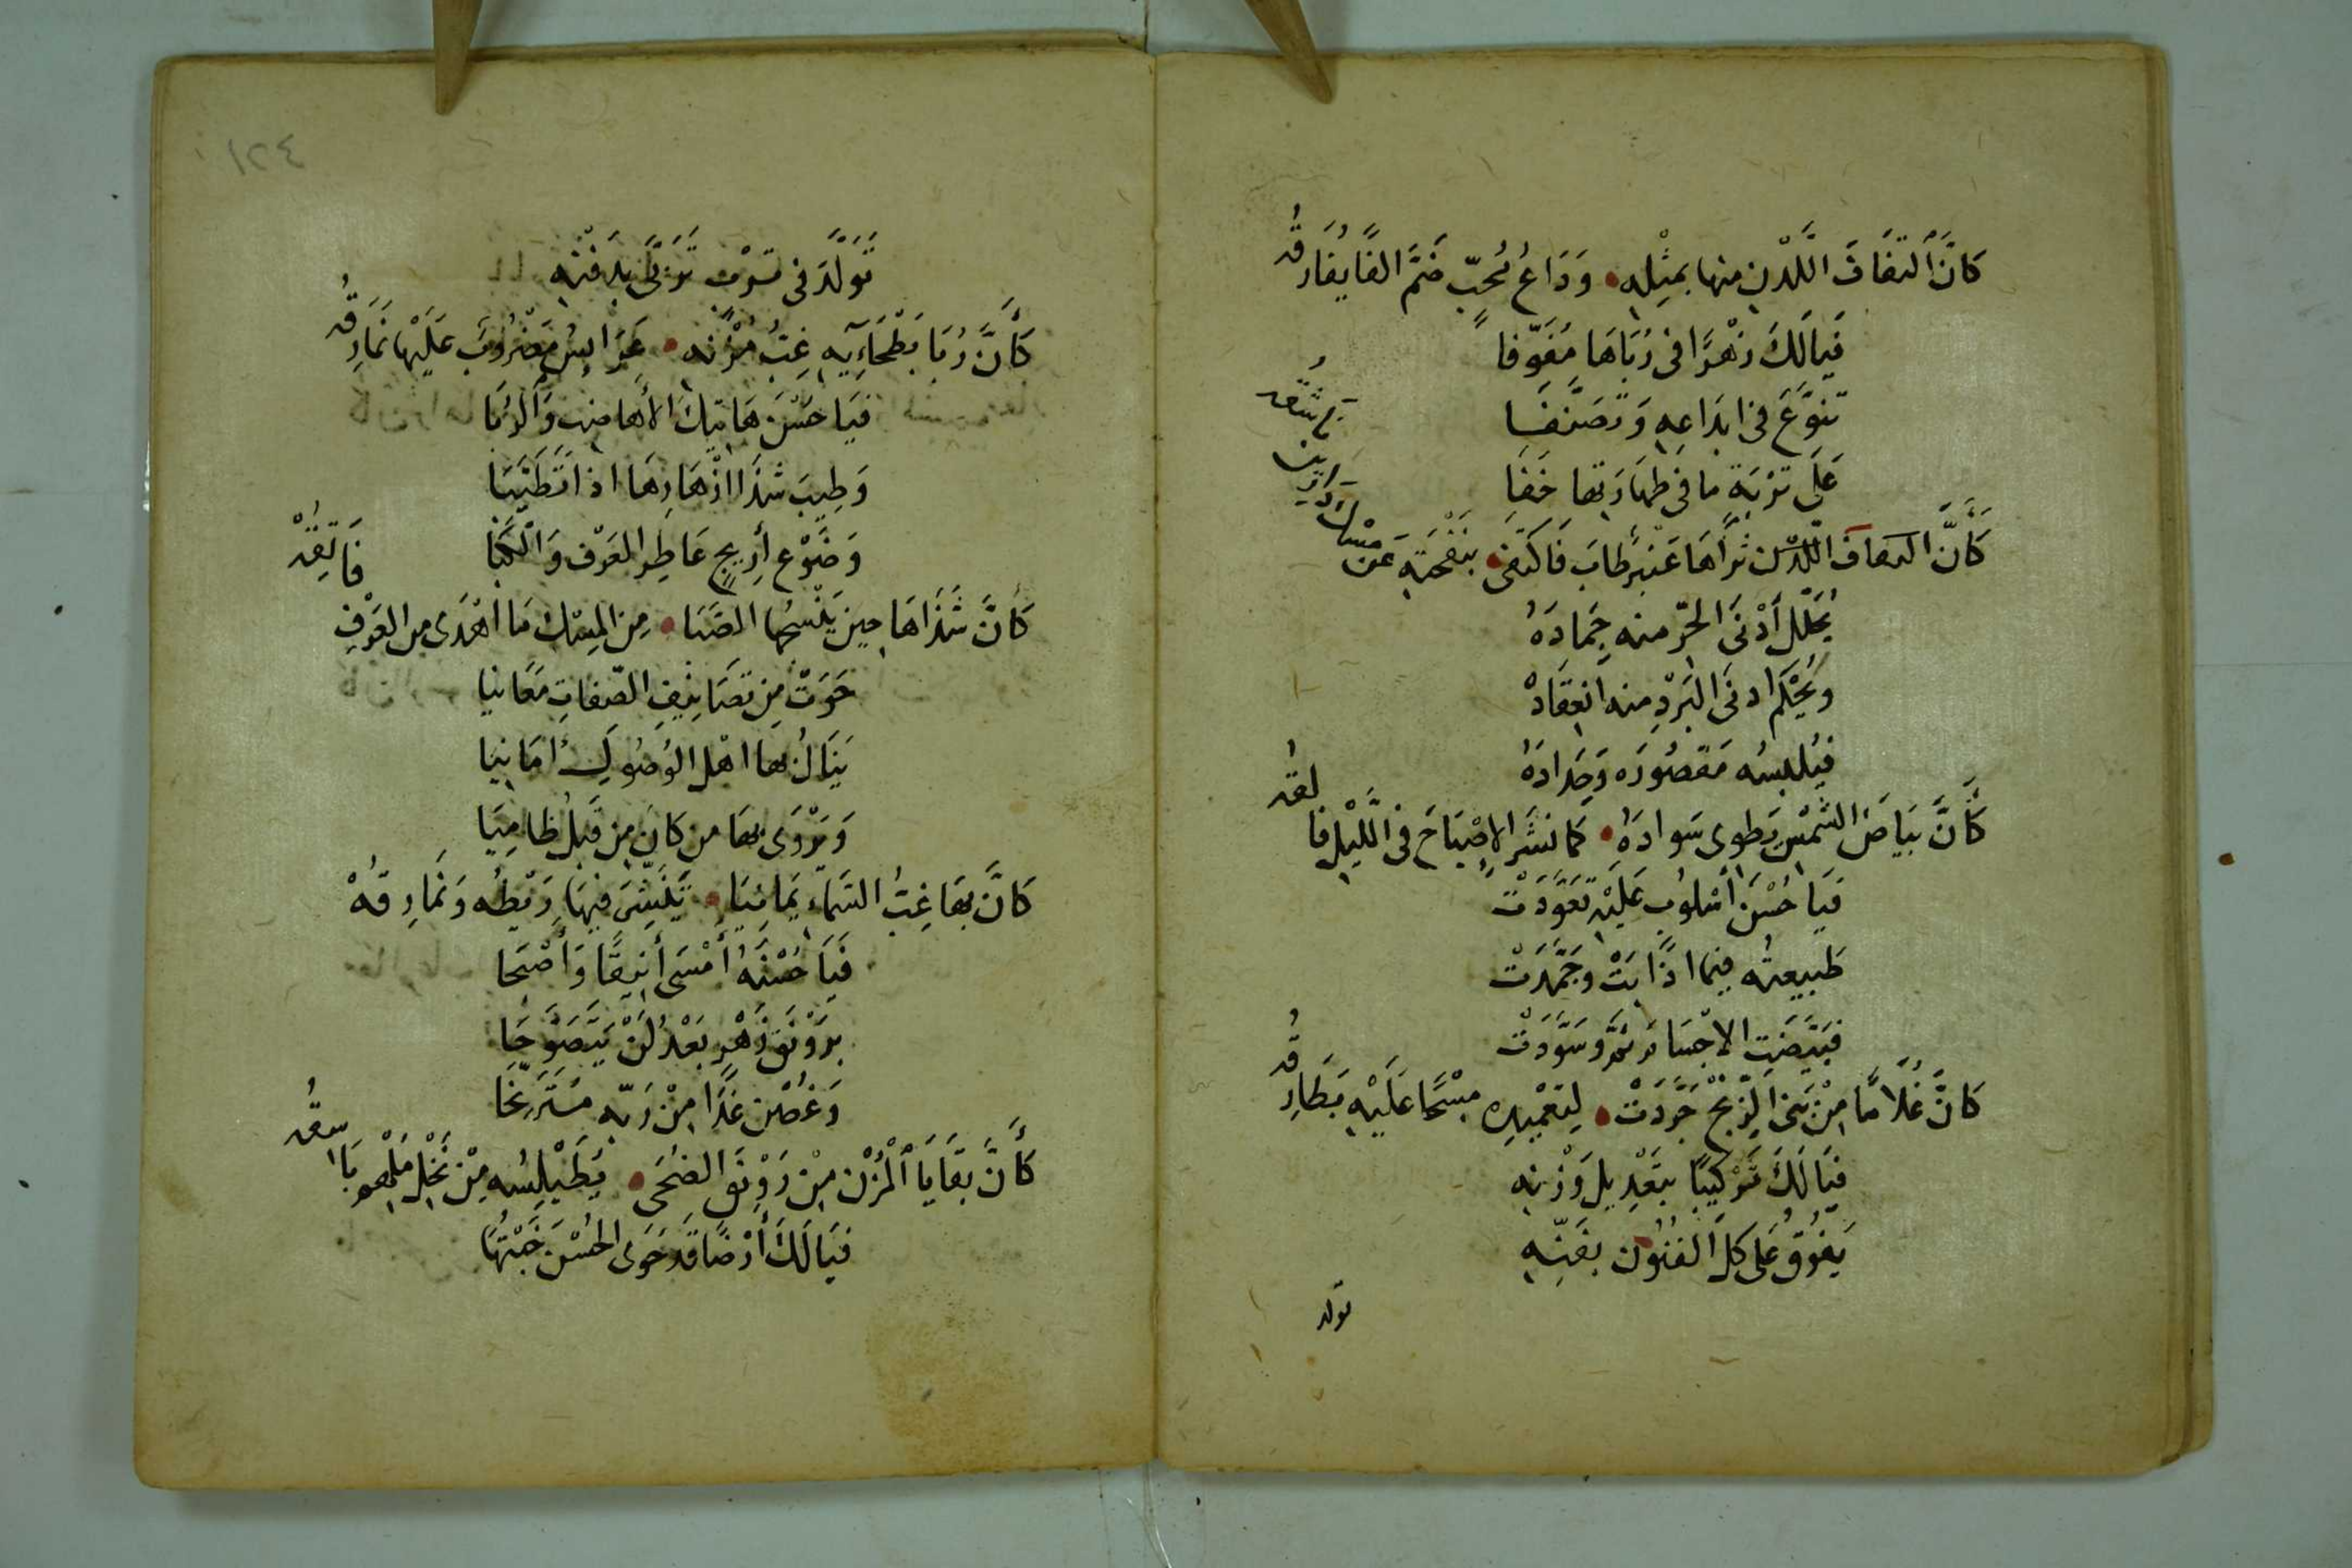 كَانَّ ٱلتفَافَ اللَّدْنِ منها بمثْلِه • وَدَاعُ مُحبّ ضَمَّ الفًا يُفَارقُه
فَيَالَكَ زهْرًا فى رُبَاهَا مُفَوّفا
تنوَّعَ فى ابدَاعِهِ وَتصَنَّفَا
عَلَى تربَةٍ ما فى طهَارَتها خَفَا
كَأَنَّ ثَرَاهَا عَنبرٌ طابَ فَاكتفى • بنَفْحَتِهِ عَن مِسْك دَارين
يُحَلّل أدْنَى الحَرّ منه جَمادَهُ
ويُحْكم ادنَى البَرْدِ منه انعِقَادَهْ
فيُلبسُه مَقصُورَه وَجِدَادَهُ
كَأَنَّ بَيَاضَ الشَّمْسِ يَطوى سَوادَهُ • كَما نَشَر الإصْبَاحَ فى اللَّيْلِ فالقُه
فَيَا حُسْنَ أُسْلوُب عَلَيْهِ تعَوَّدَتْ
طَبيعتُه فيما اذَابَتْ وجَمَّدَتْ
فبَيَّضَتِ الاجْسَامَ ثمَّ وسَوَّدَتْ
كَانَّ غُلَامًا مِنْ بَنى الزِّنْجِ جَرَّدَتْ • لِتَعْمِيدِهِ مِسْحًا عَلَيْهِ بَطَارِقُه
فَيَا لَكَ تَرْكيبًا بتَعْدِيل وَزْنِه
يَفُوقُ عَلى كلّ الفُنُونِ بفَنّهِ
تولد
١٢٤
تَوَلَّدَ فى تَرْبٍ تَوَلَّى بدَفْنِه
كَأَنَّ رُبَا بَطْحَائِهِ غِبَّ مُزْنه • عَرَايسُ مَضْرُوبٌ عَلَيْهَا نَمَارقُه
فيَا حُسْنَ هَاتِيكَ الأهاضِب وَٱلرُبَا
وَطِيبَ شذَا ازْهَارِهَا اذا تَطَيَّبَا
وَضَوْع أرِيجٍ عَاطِرِ العَرْف وَالكَبَا
كَأنَّ شَذَاهَا حِينَ يَنْسُمُها الصَّبَا • مِنَ المِسْك مَا اهْدَى من العَرْفِ فَاتِقُهْ
حَوَتْ مِن تصَانِيفِ الصّفاتِ مَعَانيا
يَنَالُ بهَا اهْل الوُصُولِ أمَانيَا
وَيَرْوَى بهَا من كانَ مِن قَبلُ ظامِيَا
كَانَّ بهَا غِبَّ السَّمَاء يَمانِيَا • تُنَشَّرَ فيهَا رَيْطُه وَنَمارِقُهْ
فَيَا حُسْنَهُ أمْسَى أنيقًا وَأصْبَحا
برَوْنَق زَهْرٍ بَعْدُ لَنْ يَتَصَوَّحَا
وَغُصْنٍ غَدَا مِنْ رَيّه مُتَرَنّحَا
كَأنَّ بَقَايَا ٱلمُزْنِ مِنْ رَوْنَقِ الضُحَى • يَطَيْلِسُه مِنْ نَخْلِ مَلْهُوبَ باسقُه
فيَالَكَ أَرْضًا قَد حَوَى الحُسْنَ خَبْتُهَا